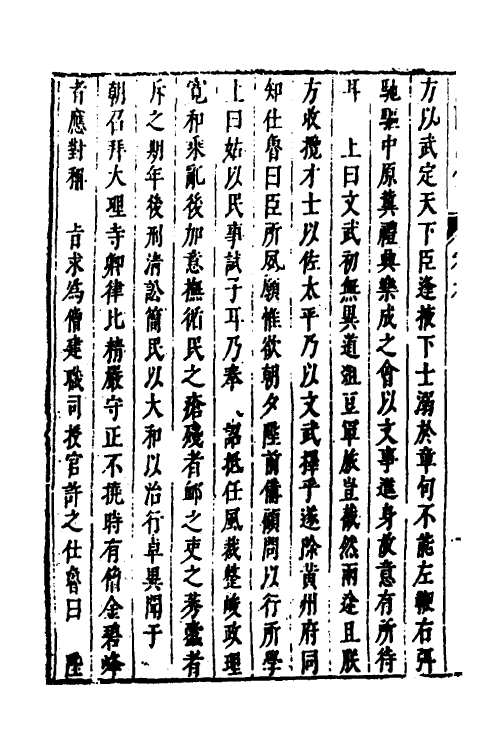 方以武定天下臣逢掖下士溺於章句不能左鞭右弭
馳驅中原冀禮興樂成之會以文事進身故意有所待
耳　上曰文武初無異道俎豆軍旅豈截然兩途且朕
方收攬才士以佐太平乃以文武擇乎遂除黃州府同
知仕魯曰臣所夙願惟欲朝夕陛前備顧問以行所學
上曰姑以民事試子耳乃奉　詔抵任風裁整峻政理
寬和乘亂後加意撫循民之瘡殘者卹之吏之蓁蠹者
斥之期年後刑清訟簡民以大和以治行卓異聞于
朝召拜大理寺卿律比精嚴守正不撓時有僧金碧峰
者應對稱　旨求為僧建職司授官許之仕魯曰　陛